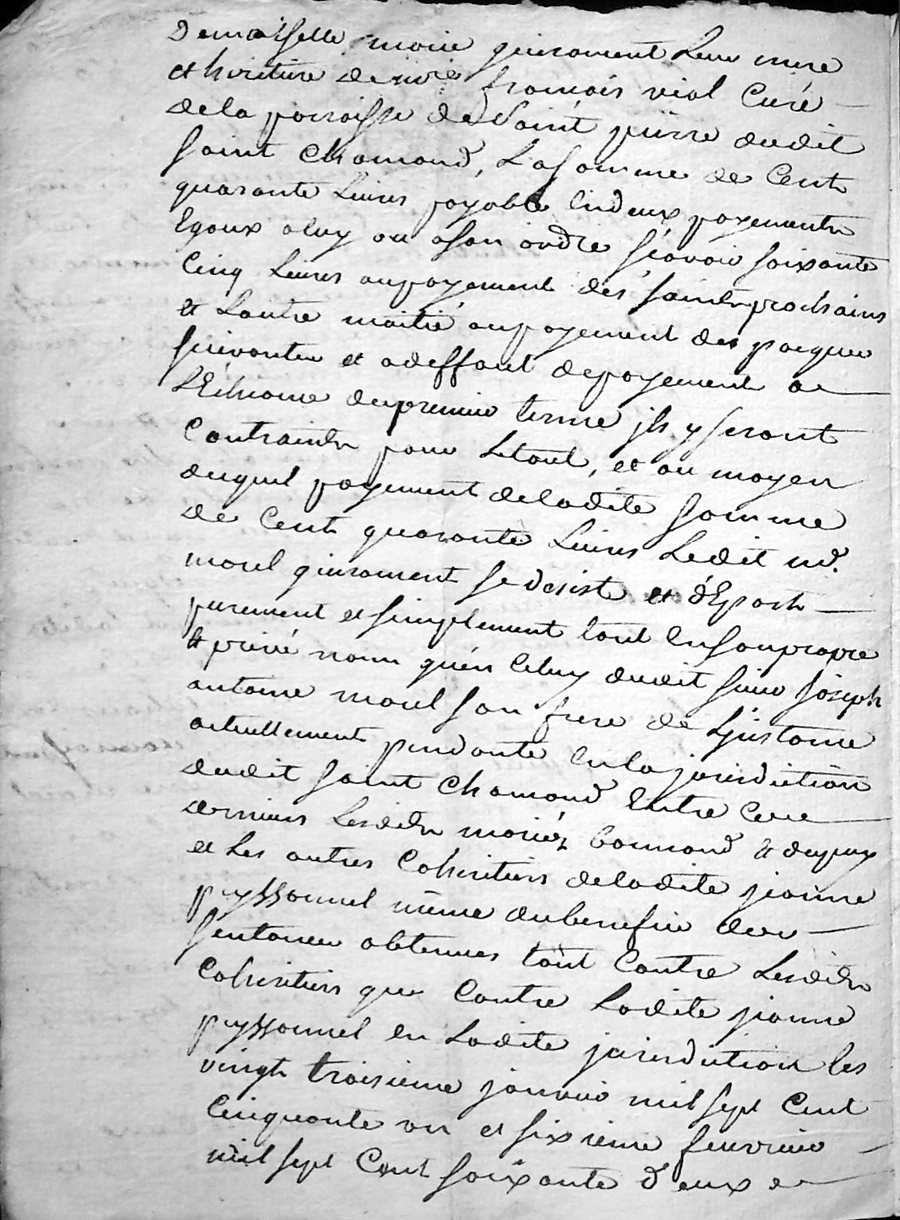 Demoiselle marie guirament Leur mere
et heritiere de mre françois vial Curé
dela parroisse de Saint pierre dudit
saint Chamond, La somme de Cent
quarante Livres payable En deux payements
Egaux a luy ou a son ordre sçavoir soixante
Cinq Livres au payement des saints prochains
et Lautre moitié au payement des pasques
suivantes et a deffaut de payement a
L'Echeance du premier terme jls y seront
Contraints pour Letout, et au moyen
duquel payement deladite somme
de Cent quarante Livres Ledit md.
morel guirament se desiste et d'Epart
purement et simplement tant En son propre
et privé nom qu'en Celuy dudit sieur joseph
antoine morel son frere de L'jnstance
actuellement pendante En la jurisdiction
dudit saint Chamond Entre Ces
derniers Lesdits mariez bonnand et dupuy
et Les autres Coheritiers deladite jeanne
peyssonnel même du benefice des
sentances obtenues tant Contre Lesdits
Coheritiers que Contre Ladite jeanne
peyssonnel en Ladite jurisdiction les
vingt troisieme janvier mil sept Cent
Cinquante un et sixieme feuvrier
mil sept Cent soixante d'eux a